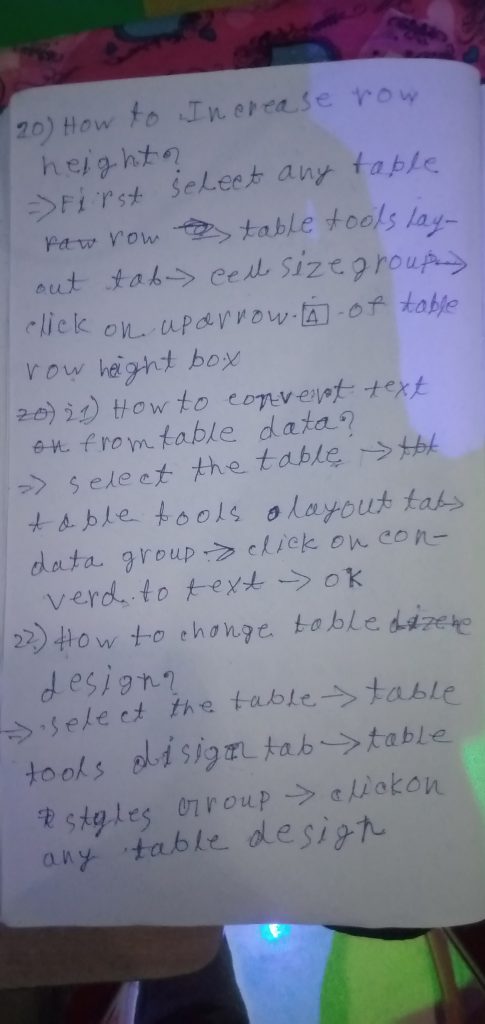 20) How to Increase row
height?
⇒ First select any table
raw row → table tools lay-
out tab → cell size group →
click on uparrow. of table
row height box
20) 21) How to convert text
on from table data?
⇒ select the table → tbt
table tools layout tab →
data group → click on con-
verd. to text → ok
22) How to change table
design?
⇒ select the table → table
tools disign tab → table
styles group → click on
any table design